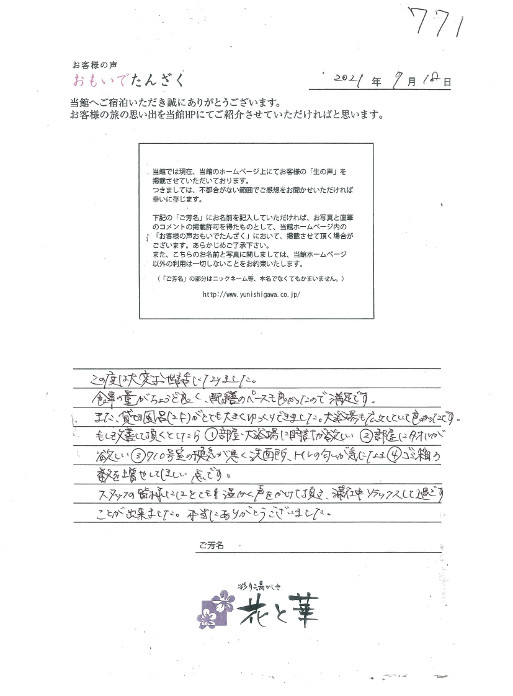 771
お客様の声
おもいでたんざく
2021年9月18日
当館へご宿泊いただき誠にありがとうございます。
お客様の旅の思い出を当館HPにてご紹介させていただければと思います。
当館では現在、当館のホームページ上にてお客様の「生の声」を
掲載させていただいております。
つきましては、不都合がない範囲でご感想をお聞かせいただければ
幸いに存じます。
下記の「ご芳名」にお名前を記入していただければ、お写真と直筆
のコメントの掲載許可を得たものとして、当館ホームページ内の
「お客様の声おもいでたんざく」において、掲載させて頂く場合が
ございます。あらかじめご了承下さい。
また、こちらのお名前と写真に関しましては、当館ホームページ
以外の利用は一切しないことをお約束いたします。
(「ご芳名」の部分はニックネーム等、本名でなくてもかまいません。)
http://www.yunishigawa.co.jp/
この度は大変お世話になりました。
食事の量がちょうど良く、配膳のペースも良かったので満足です。
また、貸切風呂(2F)がとても大きくゆっくりできました。大浴場も広々としていて良かったです。
もし改善して頂くとしたら①部屋・大浴場に時計が欲しい②部屋に
欲しい③910号室の換気が悪く洗面所、トイレの匂いが気になる④ゴミ箱の
数を増やしてほしい 点です。
スタッフの皆様にはとても温かく声をかけて頂き、滞在中リラックスして過ごす
ことが出来ました。本当にありがとうございました。
ご芳名
彩り湯かしき
花と華